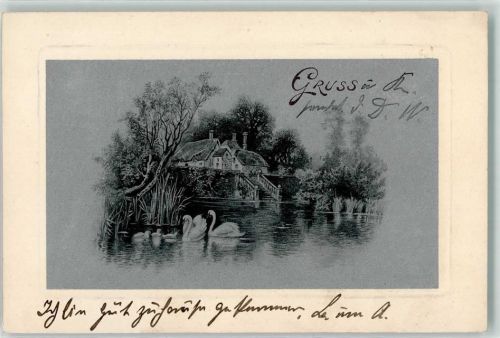 Gruss a K.
d. D. W
Ich bin gut zuhause gekommen, A.